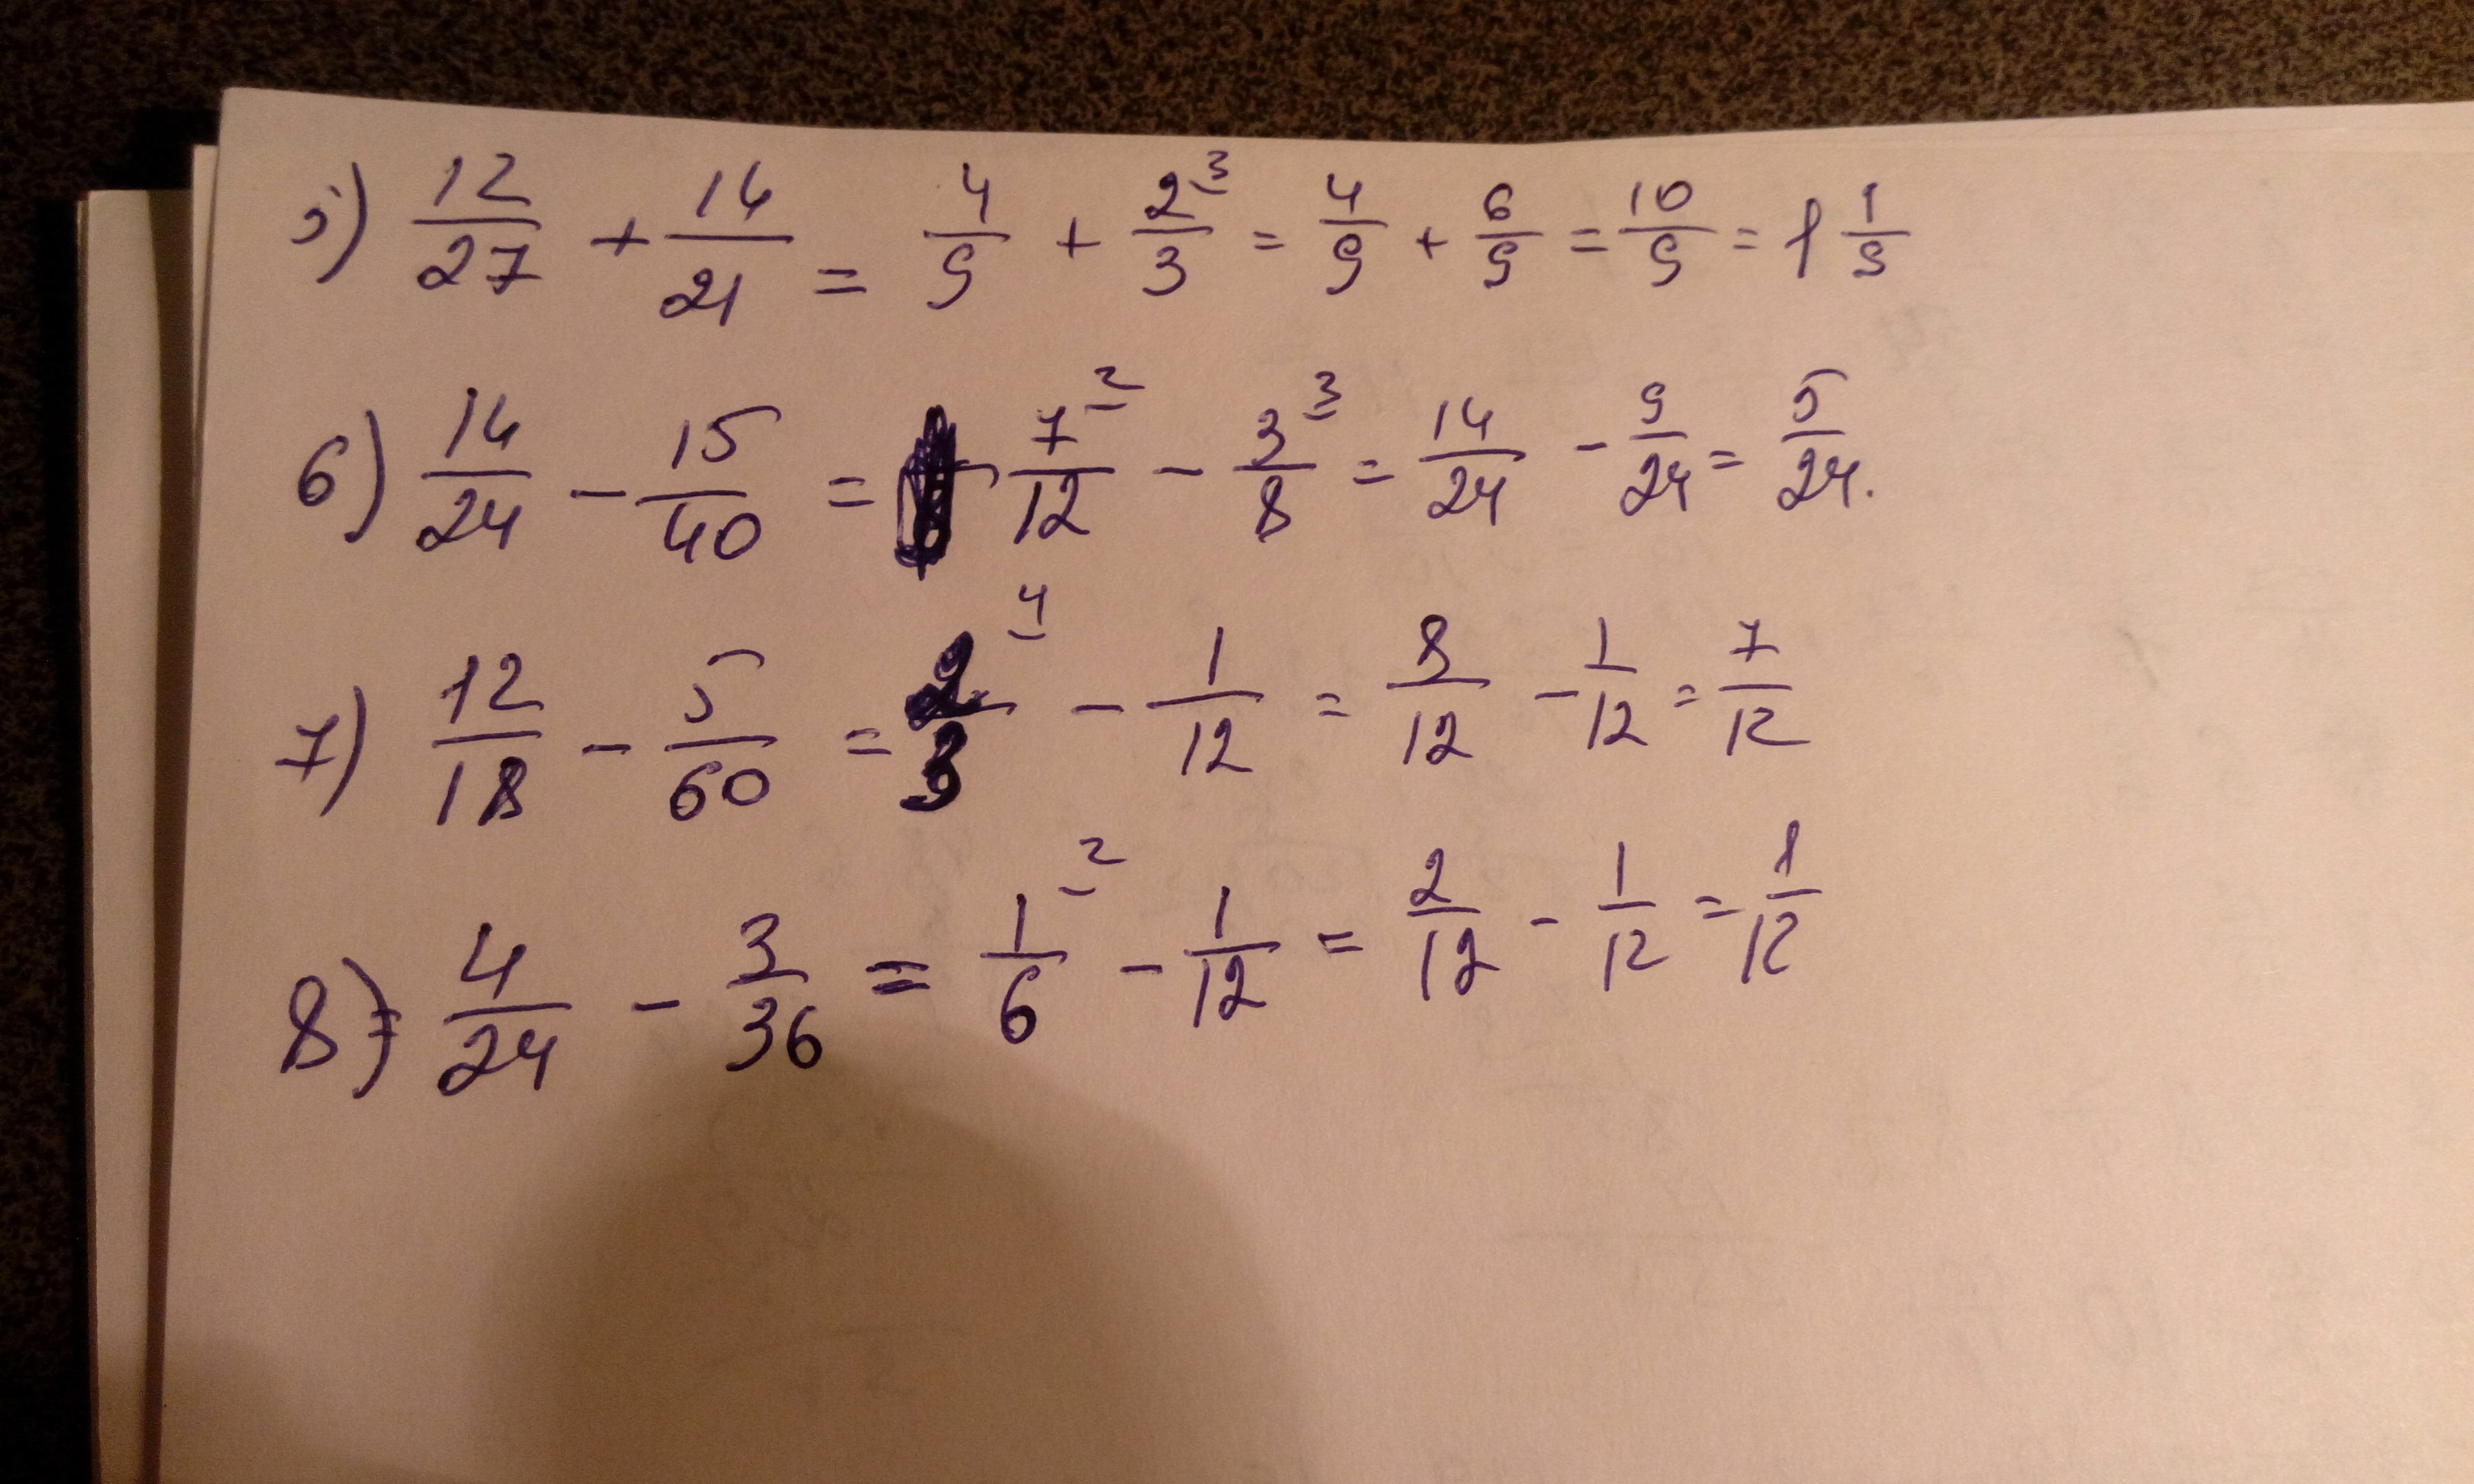 5) 12/27 + 14/21 = 4/9 + 2/3 ³ = 4/9 + 6/9 = 10/9 = 1 1/9
6) 14/24 - 15/40 = 7/12 ² - 3/8 ³ = 14/24 - 9/24 = 5/24.
7) 12/18 - 5/60 = 2/3 ⁴ - 1/12 = 8/12 - 1/12 = 7/12
8) 4/24 - 3/36 = 1/6 ² - 1/12 = 2/12 - 1/12 = 1/12